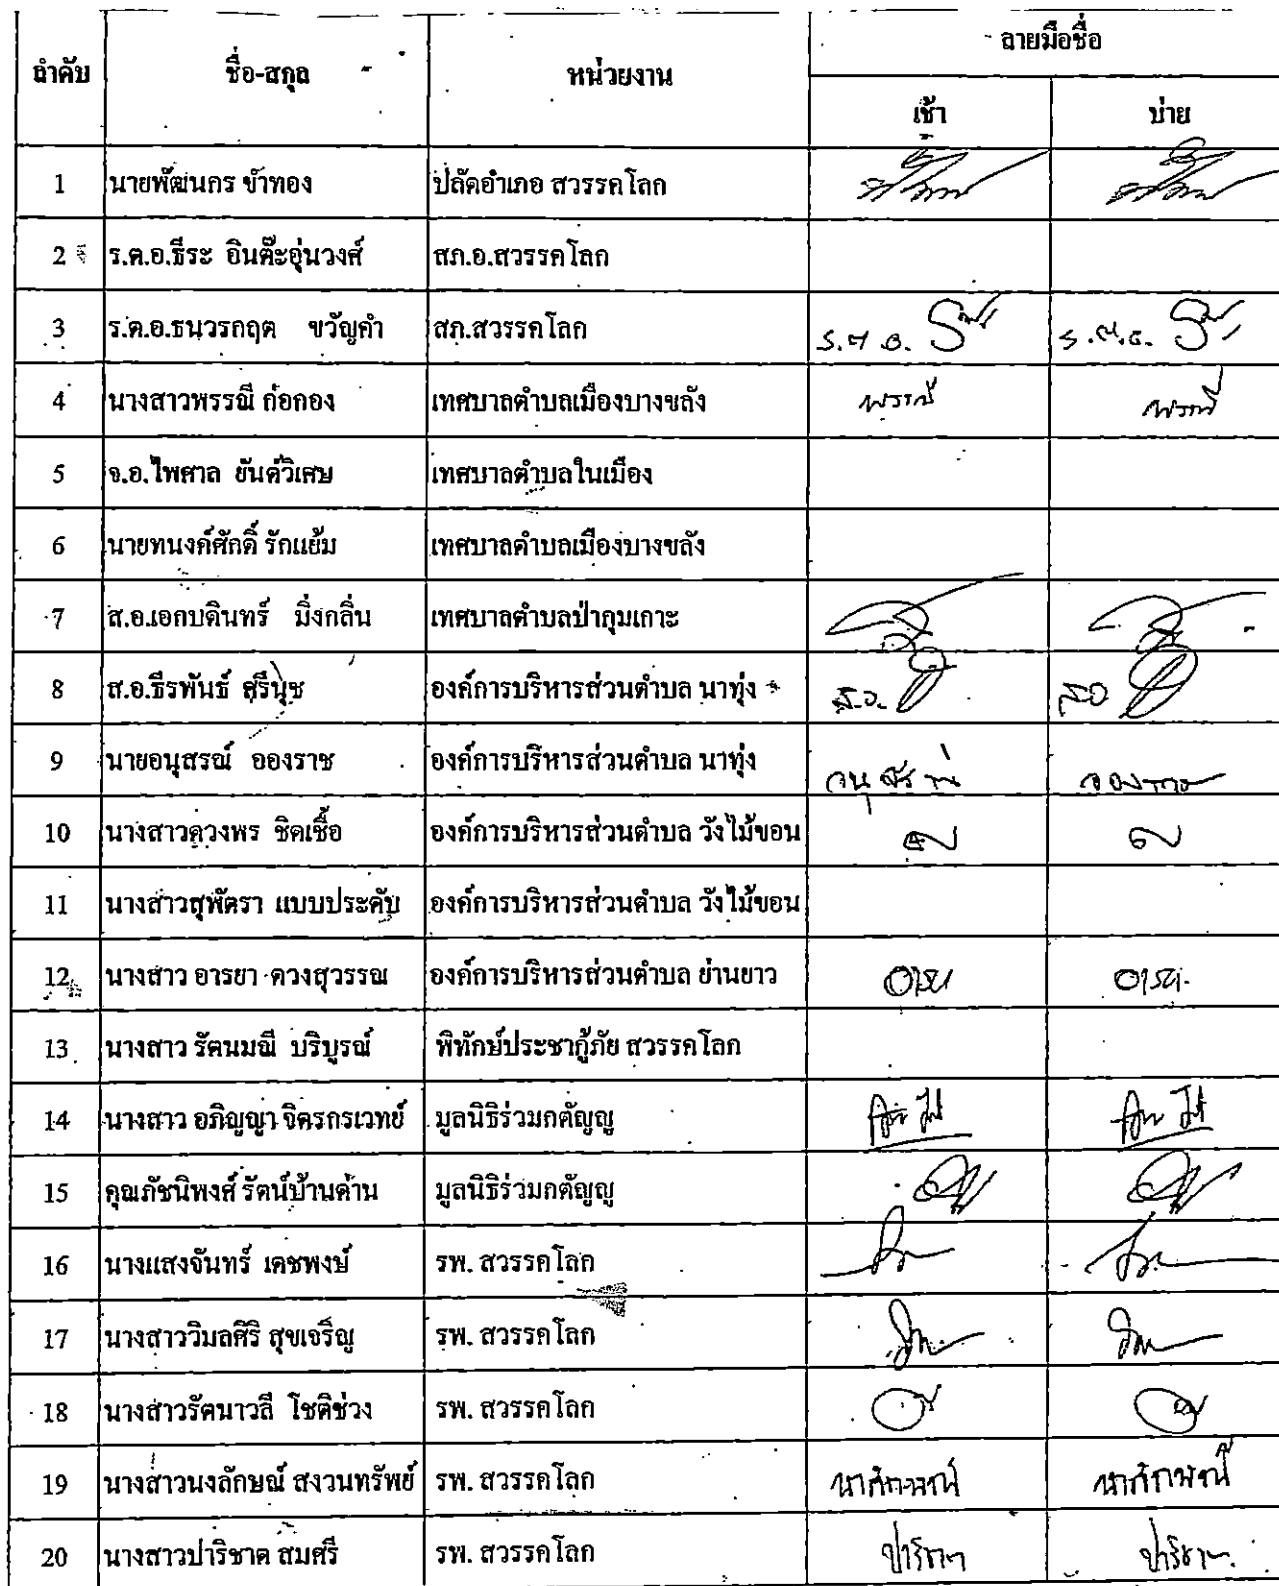 ลำดับ ชื่อ-สกุล หน่วยงาน ลายมือชื่อ
เช้า บ่าย
1 นายพัฒนกร ขำทอง ปลัดอำเภอ สวรรคโลก
2 ร.ต.อ.ธีระ อินต๊ะอุ่นวงศ์ สภ.อ.สวรรคโลก
3 ร.ต.อ.ธนวรกฤต ขวัญคำ สภ.สวรรคโลก ร.ต.อ. ร.ต.อ.
4 นางสาวพรรณี ก่อกอง เทศบาลตำบลเมืองบางขลัง พรรณี พรรณี
5 จ.อ.ไพศาล ยันต์วิเศษ เทศบาลตำบลในเมือง
6 นายทนงค์ศักดิ์ รักแย้ม เทศบาลตำบลเมืองบางขลัง
7 ส.อ.เอกบดินทร์ มิ่งกลิ่น เทศบาลตำบลป่ากุมเกาะ
8 ส.อ.ธีรพันธ์ สุรีนุช องค์การบริหารส่วนตำบล นาทุ่ง ส.อ. สอ
9 นายอนุสรณ์ อองราช องค์การบริหารส่วนตำบล นาทุ่ง อนุสรณ์
10 นางสาวดวงพร ชิดเชื้อ องค์การบริหารส่วนตำบล วังไม้ขอน
11 นางสาวสุพัตรา แบบประดับ องค์การบริหารส่วนตำบล วังไม้ขอน
12 นางสาว อารยา ดวงสุวรรณ องค์การบริหารส่วนตำบล ย่านยาว
13 นางสาว รัตนมณี บริบูรณ์ พิทักษ์ประชากู้ภัย สวรรคโลก
14 นางสาว อภิญญา จิตรกรเวทย์ มูลนิธิร่วมกตัญญู
15 คุณภัชนิพงศ์ รัตน์บ้านด่าน มูลนิธิร่วมกตัญญู
16 นางแสงจันทร์ เดชพงษ์ รพ. สวรรคโลก
17 นางสาววิมลศิริ สุขเจริญ รพ. สวรรคโลก
18 นางสาวรัตนาวลี โชติช่วง รพ. สวรรคโลก
19 นางสาวนงลักษณ์ สงวนทรัพย์ รพ. สวรรคโลก
20 นางสาวปาริชาต สมศรี รพ. สวรรคโลก ปาริชาต ปาริชาต